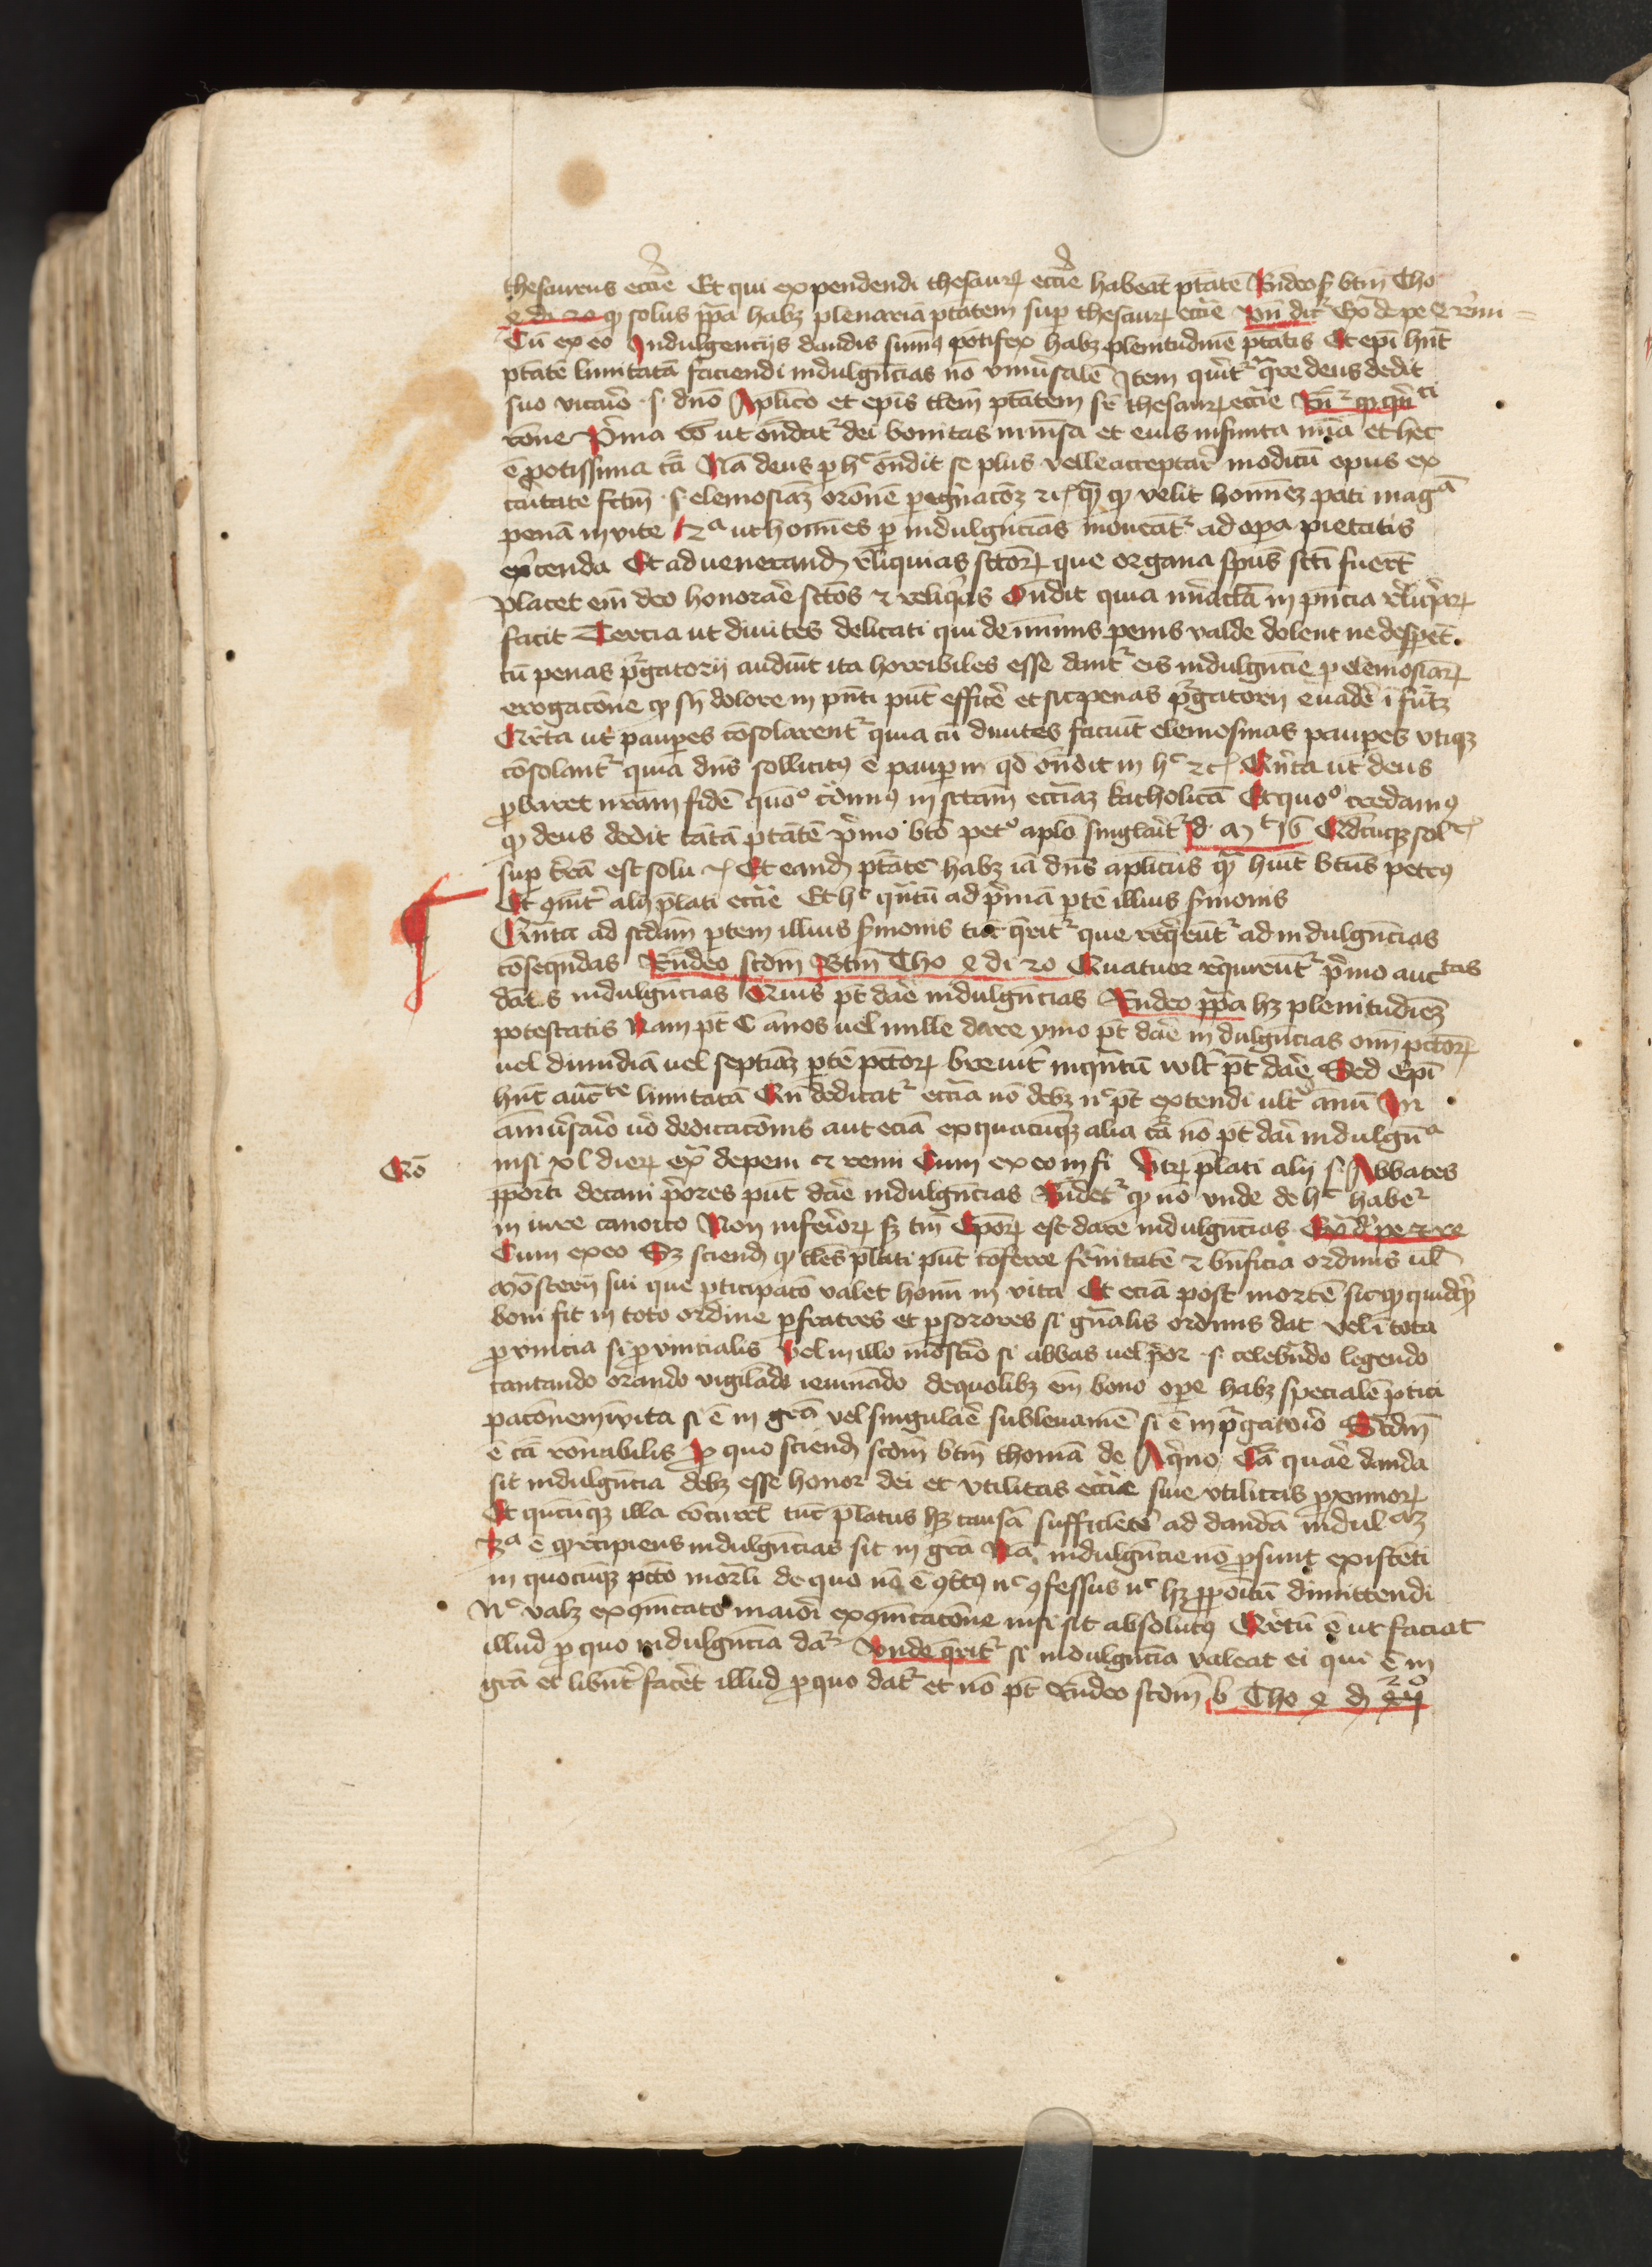 thesaurus eccīe Et qui expendendi thesaurꝝ eccīe habeāt ptātē Rn̄deo ẜ btm̄ Tho
q di 20 ꝙ solus ppa habꝫ plenariā ptātem sup thesaurꝝ eccīe vn̄ dit᷑ de pe
Cū ex eo Indulgencijs dandis sūmꝰ pōtifex habꝫ plenitudinē ptātis Et epī hn̄t
ptātē limitatā faciendi indulgēcias nō vniūsalē Item querit᷑ qre deus dedit
suo vicario .s. dn̄o Aplico et epis tlem̄ ptātem sr̄ thesaurꝝ eccīe
rōne Prima ut on̄dat᷑ dei bonitas inmēsa et eius infinita mīa et hec
ē potissima cā Nā deus p hᶜ on̄dit se plus velle acceptare modicū opus ex
caritate fctm̄ .s. elemosīaꝫ orōnē pegrinacōꝫ ꝛc qꝫ ꝙ velit homīeꝫ pati magᵃ
penā in vite 2ᵃ ut homīes p indulgn̄cias moueāt᷑ ad opa pietatis
exercenda Et ad venerand reliquias sctorꝝ que organa spūs scti fuerūt
placet em̄ deo honorare sctōs ⁊ reliquias On̄dit quia miracla in pn̄cia reliqarꝝ
facit Tercia ut diuites delicati qui de minimis penis valde dolent ne despent.
cū penas purgatorij audiūt ita horribiles esse dant᷑ eis indulgn̄cie p elemosīarꝝ
erogacōne ꝙ sn̄ dolore in pn̄ti pn̄t efficē et sic penas purgatorij euadē ī futꝫ
Qrta ut paupes cōsolarent᷑ quia cū diuites faciūt elemosinas paupes vtiqꝫ
cōsolant᷑ quia dn̄s sollicitꝰ ē paupm qd on̄dit in hᶜ ꝛc Qn̄ta ut deus
pbaret nr̄am fidē quōᵒ in sctam ecciaꝫ katholicā Et quōᵒ credamꝰ
ꝙ deus dedit tātā ptātē primo bto petᵒ aplo singlarit᷑ Mᵗ 16 Qdcūqꝫ sol
sup trā est solu ꝛ Et eand ptātē habꝫ iā dn̄s aplicus qꝫ huit btus petrꝰ
Et alij plati eccīe Et hᶜ qn̄tū ad primā ptē illius smonis
Qn̄tū ad scdam ptem illius smonis tūc qrit᷑ que reqrūt᷑ ad indulgn̄cias
cōseqndas Rn̄deo scdm Btm̄ Tho q di 20 Quatuor requirūt᷑ primo auctᵗᵃˢ
dātis indulgn̄cias Quis pt dare indulgn̄cias Rn̄deo ppa hꝫ plenitudīeꝫ
potestatis Nam pt C ānos uel mille dare ymo pt dare indulgn̄cias oīm pctorꝝ
uel dimidiā uel septimā ptē pctorꝝ breuit᷑ inqn̄tū volt pt dare Sed Epī
hn̄t aucᵗᵉ limitatā Qn̄ dedicat᷑ eccia nō debꝫ nᶜ pt extendi ult᷑ annū In
anniūsario uō dedicacōnis aut eciā ex quacūqꝫ alia cā nō pt dari indulgnᵃ
Qō nisi xl dierꝝ exᵃ de peni ⁊ remi Cum ex eo in fi Vtrꝫ plati alij .s. Abbates
ppōiti decani priores pn̄t dare indulgn̄cias Rn̄det᷑ ꝙ nō vnde de hᶜ habe᷑
in iure canoico Non inferiorꝝ sꝫ tm̄ Eporꝝ est dare indulgn̄cias Ex de pe ⁊ re
Cum ex eo Sꝫ sciend ꝙ tles plati pn̄t cōferre frnitatē ⁊ bn̄ficia ordinis ul
mōsterij sui que pticipacō valet homi in vita Et eciā post mortē sic ꝙ quidqd
boni fit in toto ordine p fratres et p sorores si gn̄alis ordinis dat vel ī tota
puincia si puincialis Vel in illo mōstrio si abbas uel prior .s. celebrādo legendo
cantando orando vigilādo ieiunādo de quolibꝫ em̄ bono ope habꝫ specialē ptici
pacōnem in vita si ē in grā vel singularē subleuamē si ē in purgatorio Scdm
ē cā rōnabilis p quo sciend scdm btm̄ thomā de Aqno Cā quare danda
sit indulgn̄cia debꝫ esse honor dei et vtilitas eccīe siue vtilitas pximorꝝ
Et qn̄cūqꝫ illa cōcurrūt tūc platus hꝫ causā sufficiētē ad dandā indulᵃᵐ
3ᵃ ē ꝙ recipiens indulgn̄cias sit in grā Nā indulgn̄cie nō psunt existēti
in quocūqꝫ pctō mortli de quo nō ē ꝯtitꝰ nᶜ ꝯfessus nᶜ hꝫ ppōitū dimittendi
Nᶜ valꝫ exꝯicato maiori exꝯicacōne nisi sit absolutꝰ Qrtū ē ut faciat
illud p quo indulgn̄cia dat᷑ Vnde qrit᷑ si indulgn̄cia valeat ei qui ē in
grā et libn̄t facēt illud p quo dat᷑ et nō pt Rn̄deo scdm b Tho q d 20